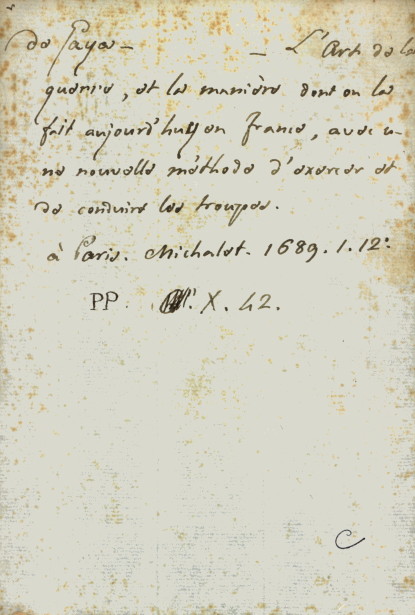 de Gaya — — L'Art de la
guerre, et la manière dont on la
fait aujourd'huy en france, avec u-
ne nouvelle méthode d'exercer et
de conduire les troupes.
à Paris. Michalet. 1689. 1. 12°.
PP. X. 42.
C